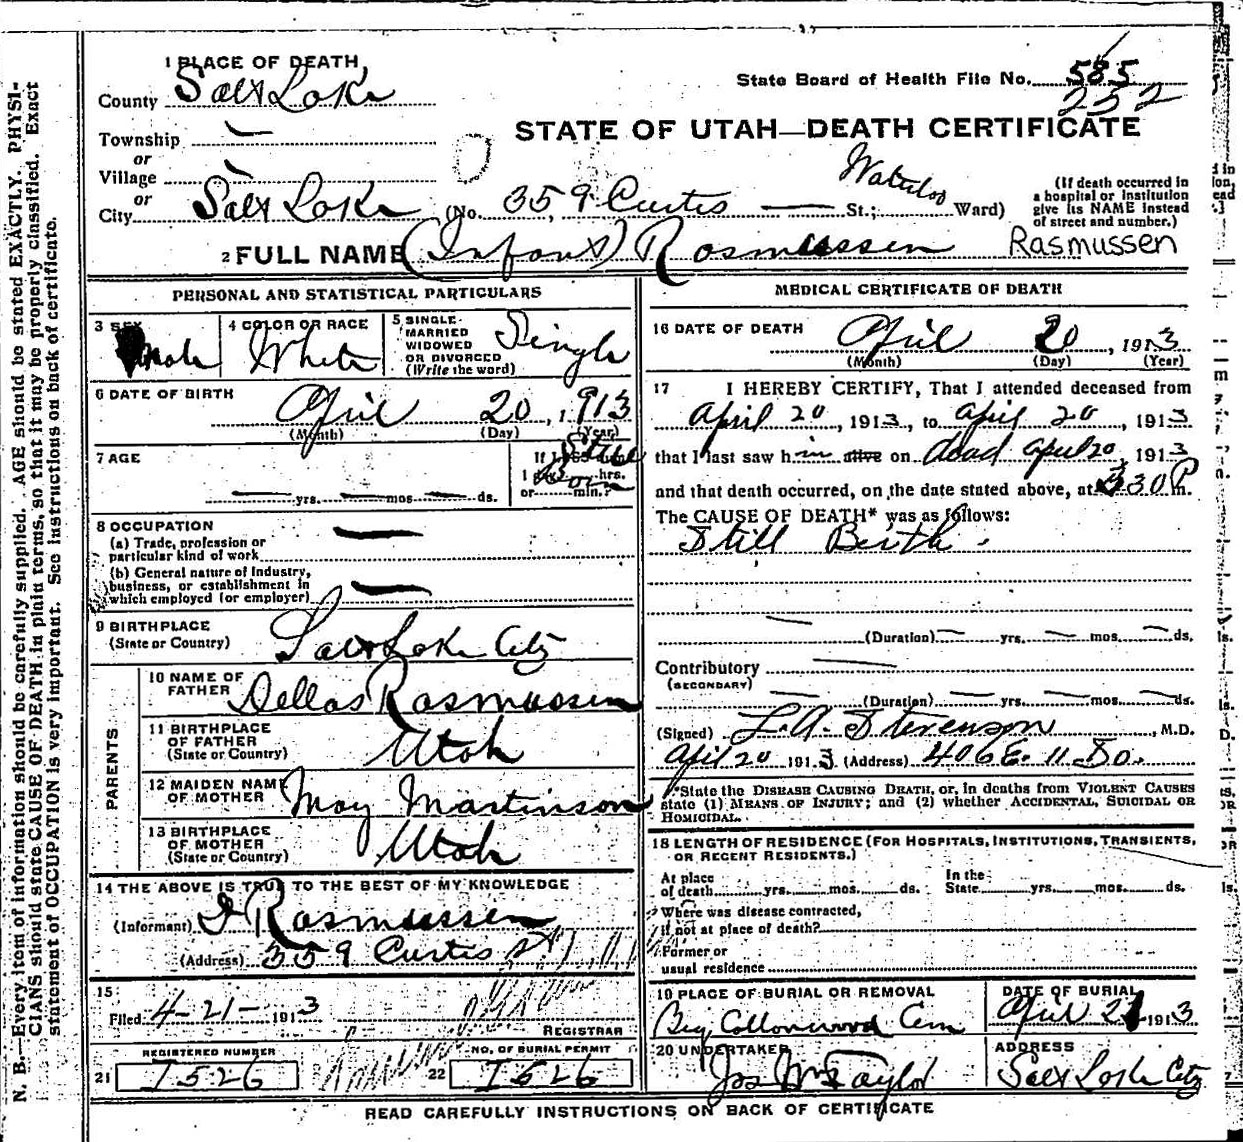 N. B.—Every item of information should be carefully supplied. AGE should be stated EXACTLY. PHYSI-
CIANS should state CAUSE OF DEATH in plain terms, so that it may be properly classified. Exact
statement of OCCUPATION is very important. See instructions on back of certificate.
1 PLACE OF DEATH
State Board of Health File No. 585
County Salt Lake
252
STATE OF UTAH—DEATH CERTIFICATE
Township —
or
Village
or
City Salt Lake (No. 359 Curtis — St.; Waterloo Ward)
(If death occurred in
a hospital or institution
give its NAME instead
of street and number.)
2 FULL NAME (Infant) Rasmussen Rasmussen
PERSONAL AND STATISTICAL PARTICULARS
3 SEX Male
4 COLOR OR RACE White
5 SINGLE-
MARRIED
WIDOWED
OR DIVORCED
(Write the word) Single
6 DATE OF BIRTH
April 20, 1913
(Month) (Day) (Year)
7 AGE
— yrs. — mos — ds.
If LESS than
1 day hrs.
or min.?
Still
Born
8 OCCUPATION
(a) Trade, profession or
particular kind of work —
(b) General nature of Industry,
business, or establishment in
which employed (or employer) —
9 BIRTHPLACE
(State or Country) Salt Lake City
PARENTS
10 NAME OF
FATHER Dellas Rasmussen
11 BIRTHPLACE
OF FATHER
(State or Country) Utah
12 MAIDEN NAME
OF MOTHER May Martinson
13 BIRTHPLACE
OF MOTHER
(State or Country) Utah
14 THE ABOVE IS TRUE TO THE BEST OF MY KNOWLEDGE
(Informant) Rasmussen
(Address) 359 Curtis st
15
Filed 4-21- 1913
REGISTRAR
REGISTERED NUMBER
21 1526
NO. OF BURIAL PERMIT
22 1526
MEDICAL CERTIFICATE OF DEATH
16 DATE OF DEATH
April 20, 1913
(Month) (Day) (Year)
17 I HEREBY CERTIFY, That I attended deceased from
April 20, 1913, to April 20, 1913
that I last saw him alive on dead April 20, 1913
and that death occurred, on the date stated above, at 30 P m.
The CAUSE OF DEATH* was as follows:
Still Birth.
— (Duration) — yrs. — mos. — ds.
Contributory —
(SECONDARY)
— (Duration) — yrs. — mos. — ds.
(Signed) L. A. Stevenson, M.D.
April 20 1913 (Address) 406 E. 11 So.
*State the DISEASE CAUSING DEATH, or, in deaths from VIOLENT CAUSES
state (1) MEANS OF INJURY; and (2) whether ACCIDENTAL, SUICIDAL OR
HOMICIDAL.
18 LENGTH OF RESIDENCE (FOR HOSPITALS, INSTITUTIONS, TRANSIENTS,
OR RECENT RESIDENTS.)
At place
of death yrs. mos. ds.
In the
State yrs. mos. ds.
Where was disease contracted,
if not at place of death?
Former or
usual residence
19 PLACE OF BURIAL OR REMOVAL
Big Cottonwood Cem
DATE OF BURIAL
April 21 1913
20 UNDERTAKER
Jos Wm Taylor
ADDRESS
Salt Lake City
READ CAREFULLY INSTRUCTIONS ON BACK OF CERTIFICATE